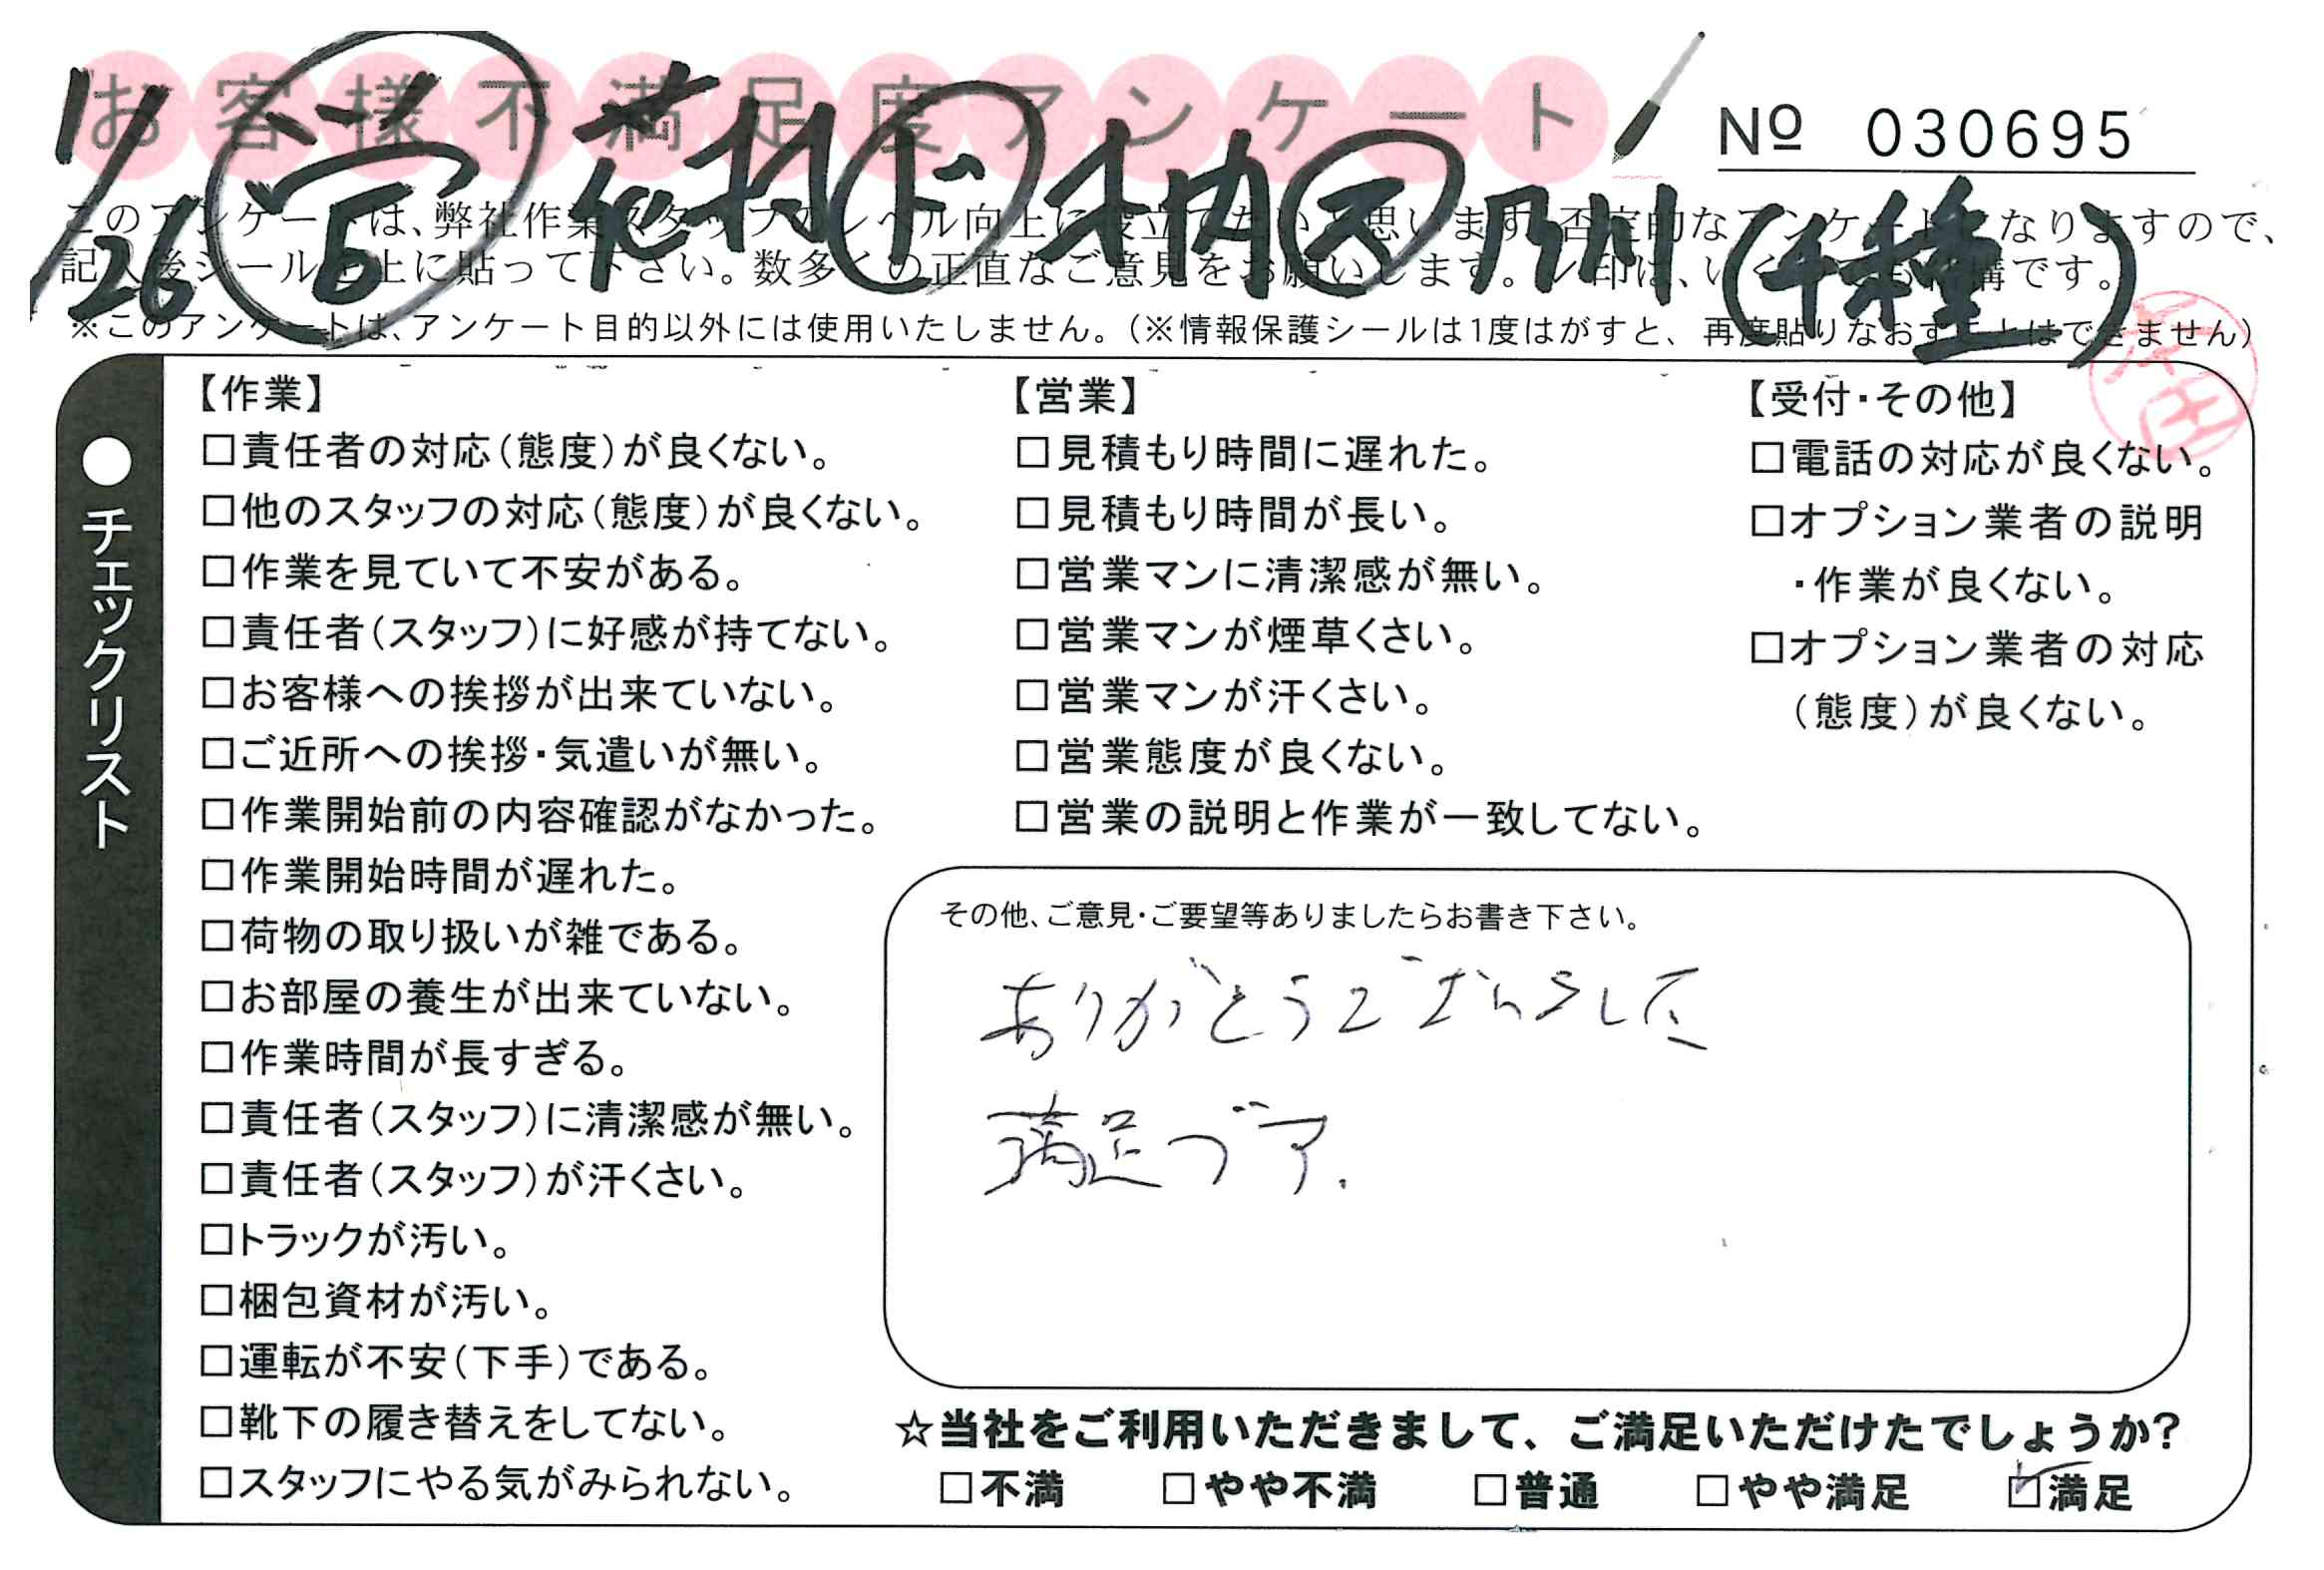 お客様不満足度アンケート
Nº 030695
1/26 営 6 花村 ド 木内 ス 乃川 (千種)
このアンケートは、弊社作業スタッフのレベル向上に役立てたいと思います。否定的なアンケートになりますので、
記入後シールを上に貼って下さい。数多くの正直なご意見をお願いします。レ印は、いくつでも結構です。
※このアンケートは、アンケート目的以外には使用いたしません。(※情報保護シールは1度はがすと、再度貼りなおすことはできません)
●チェックリスト
【作業】
□責任者の対応(態度)が良くない。
□他のスタッフの対応(態度)が良くない。
□作業を見ていて不安がある。
□責任者(スタッフ)に好感が持てない。
□お客様への挨拶が出来ていない。
□ご近所への挨拶・気遣いが無い。
□作業開始前の内容確認がなかった。
□作業開始時間が遅れた。
□荷物の取り扱いが雑である。
□お部屋の養生が出来ていない。
□作業時間が長すぎる。
□責任者(スタッフ)に清潔感が無い。
□責任者(スタッフ)が汗くさい。
□トラックが汚い。
□梱包資材が汚い。
□運転が不安(下手)である。
□靴下の履き替えをしてない。
□スタッフにやる気がみられない。
【営業】
□見積もり時間に遅れた。
□見積もり時間が長い。
□営業マンに清潔感が無い。
□営業マンが煙草くさい。
□営業マンが汗くさい。
□営業態度が良くない。
□営業の説明と作業が一致してない。
【受付・その他】
□電話の対応が良くない。
□オプション業者の説明
・作業が良くない。
□オプション業者の対応
(態度)が良くない。
その他、ご意見・ご要望等ありましたらお書き下さい。
ありがとうございました
満足です.
☆当社をご利用いただきまして、ご満足いただけたでしょうか?
□不満 □やや不満 □普通 □やや満足 ☑満足